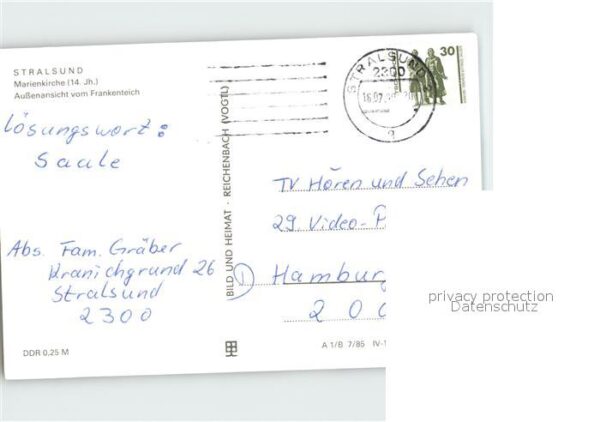 STRALSUND
Marienkirche (14. Jh.)
Außenansicht vom Frankenteich
Lösungswort:
Saale
Abs. Fam. Gräber
Kranichgrund 26
Stralsund
2300
DDR 0,25 M
BILD UND HEIMAT · REICHENBACH (VOGTL)
30
STRALSUND
2300
TV Hören und Sehen
29. Video-P
Hamburg
200
A 1/B 7/85 IV-1
privacy protection
Datenschutz